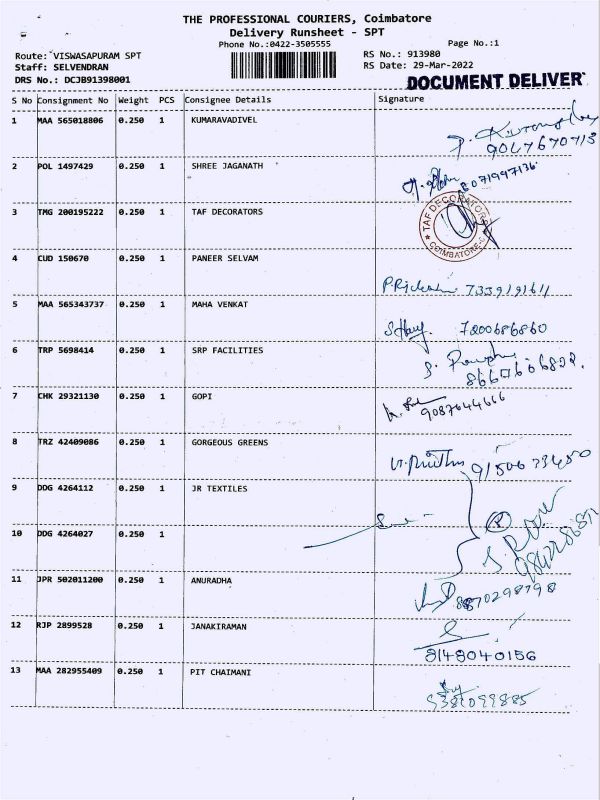 THE PROFESSIONAL COURIERS, Coimbatore
Delivery Runsheet - SPT
Phone No.:0422-3505555
Page No.:1
Route: VISWASAPURAM SPT
RS No.: 913980
Staff: SELVENDRAN
RS Date: 29-Mar-2022
DRS No.: DCJB91398001
DOCUMENT DELIVER
S No Consignment No Weight PCS Consignee Details Signature
1 MAA 565018806 0.250 1 KUMARAVADIVEL
9047670713
2 POL 1497429 0.250 1 SHREE JAGANATH
8071997136
3 TMG 200195222 0.250 1 TAF DECORATORS
TAF DECORATORS COIMBATORE
4 CUD 150670 0.250 1 PANEER SELVAM
7339191611
5 MAA 565343737 0.250 1 MAHA VENKAT
7200686860
6 TRP 5698414 0.250 1 SRP FACILITIES
7 CHK 29321130 0.250 1 GOPI
9087644666
8 TRZ 42409086 0.250 1 GORGEOUS GREENS
9150673450
9 DDG 4264112 0.250 1 JR TEXTILES
10 DDG 4264027 0.250 1
11 JPR 502011200 0.250 1 ANURADHA
8870298798
12 RJP 2899528 0.250 1 JANAKIRAMAN
8148040156
13 MAA 282955409 0.250 1 PIT CHAIMANI